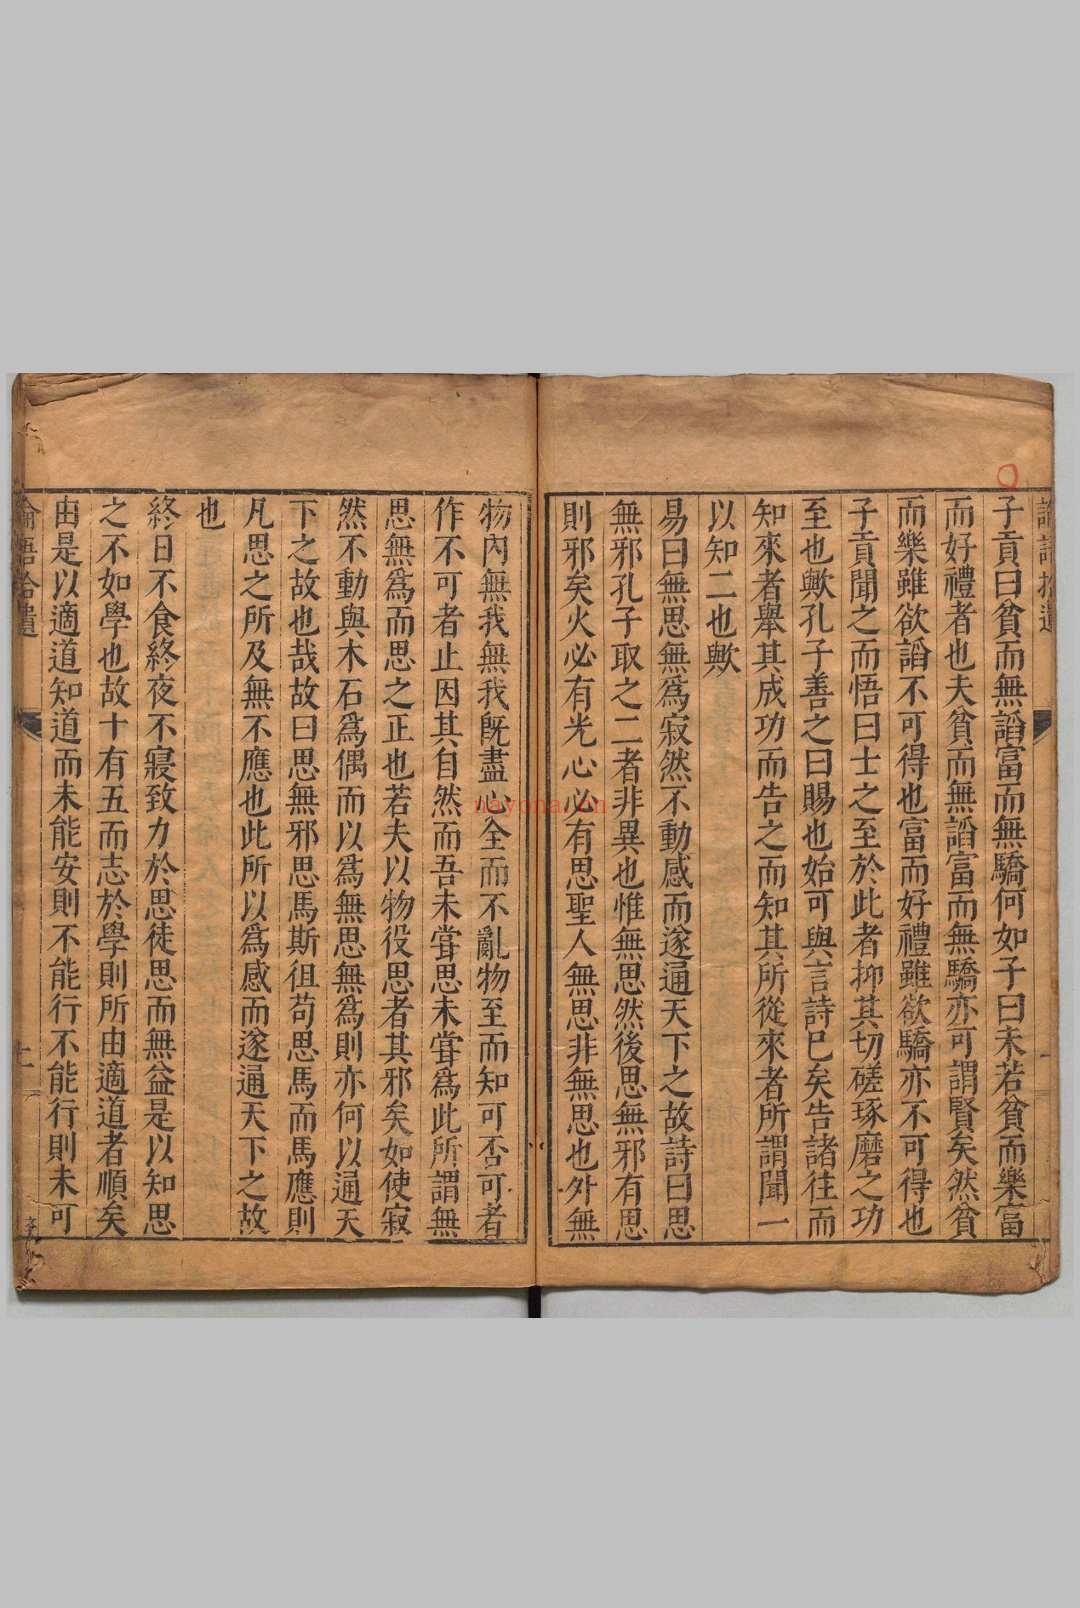 子貢曰貧而無謟富而無驕何如子曰未若貧而樂富
而好禮者也夫貧而無謟富而無驕亦可謂賢矣然貧
而樂雖欲謟不可得也富而好禮雖欲驕亦不可得也
子貢聞之而悟曰士之至於此者抑其切磋琢磨之功
至也歟孔子善之曰賜也始可與言詩巳矣告諸往而
知來者舉其成功而告之而知其所從來者所謂聞一
以知二也歟
易曰無思無爲寂然不動感而遂通天下之故詩曰思
無邪孔子取之二者非異也惟無思然後思無邪有思
則邪矣火必有光心必有思聖人無思非無思也外無
物內無我無我旣盡心全而不亂物至而知可否可者
作不可者止因其自然而吾未嘗思未嘗爲此所謂無
思無爲而思之正也若夫以物役思者其邪矣如使寂
然不動與木石爲偶而以爲無思無爲則亦何以通天
下之故也哉故曰思無邪思馬斯徂苟思馬而馬應則
凡思之所及無不應也此所以爲感而遂通天下之故
也
終日不食終夜不寢致力於思徒思而無益是以知思
之不如學也故十有五而志於學則所由適道者順矣
由是以適道知道而未能安則不能行不能行則未可
論語拾遺
二
nayona.cn